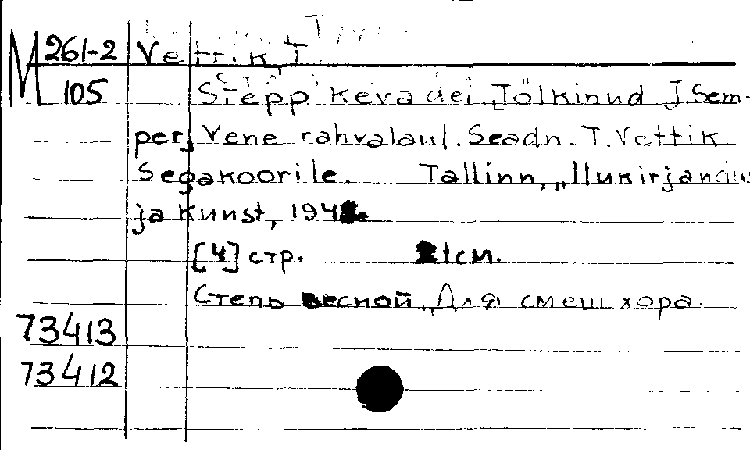 M 261-2 Vettik, T.
105 Stepp kevadel. Tõlkinud J. Sem-
per, Vene rahvalaul. Seadn. T. Vettik
Segakoorile. Tallinn, „Ilukirjandus
ja Kunst, 194
[4] стр. 21см.
Степь весной. Для смеш хора.
73413
73412